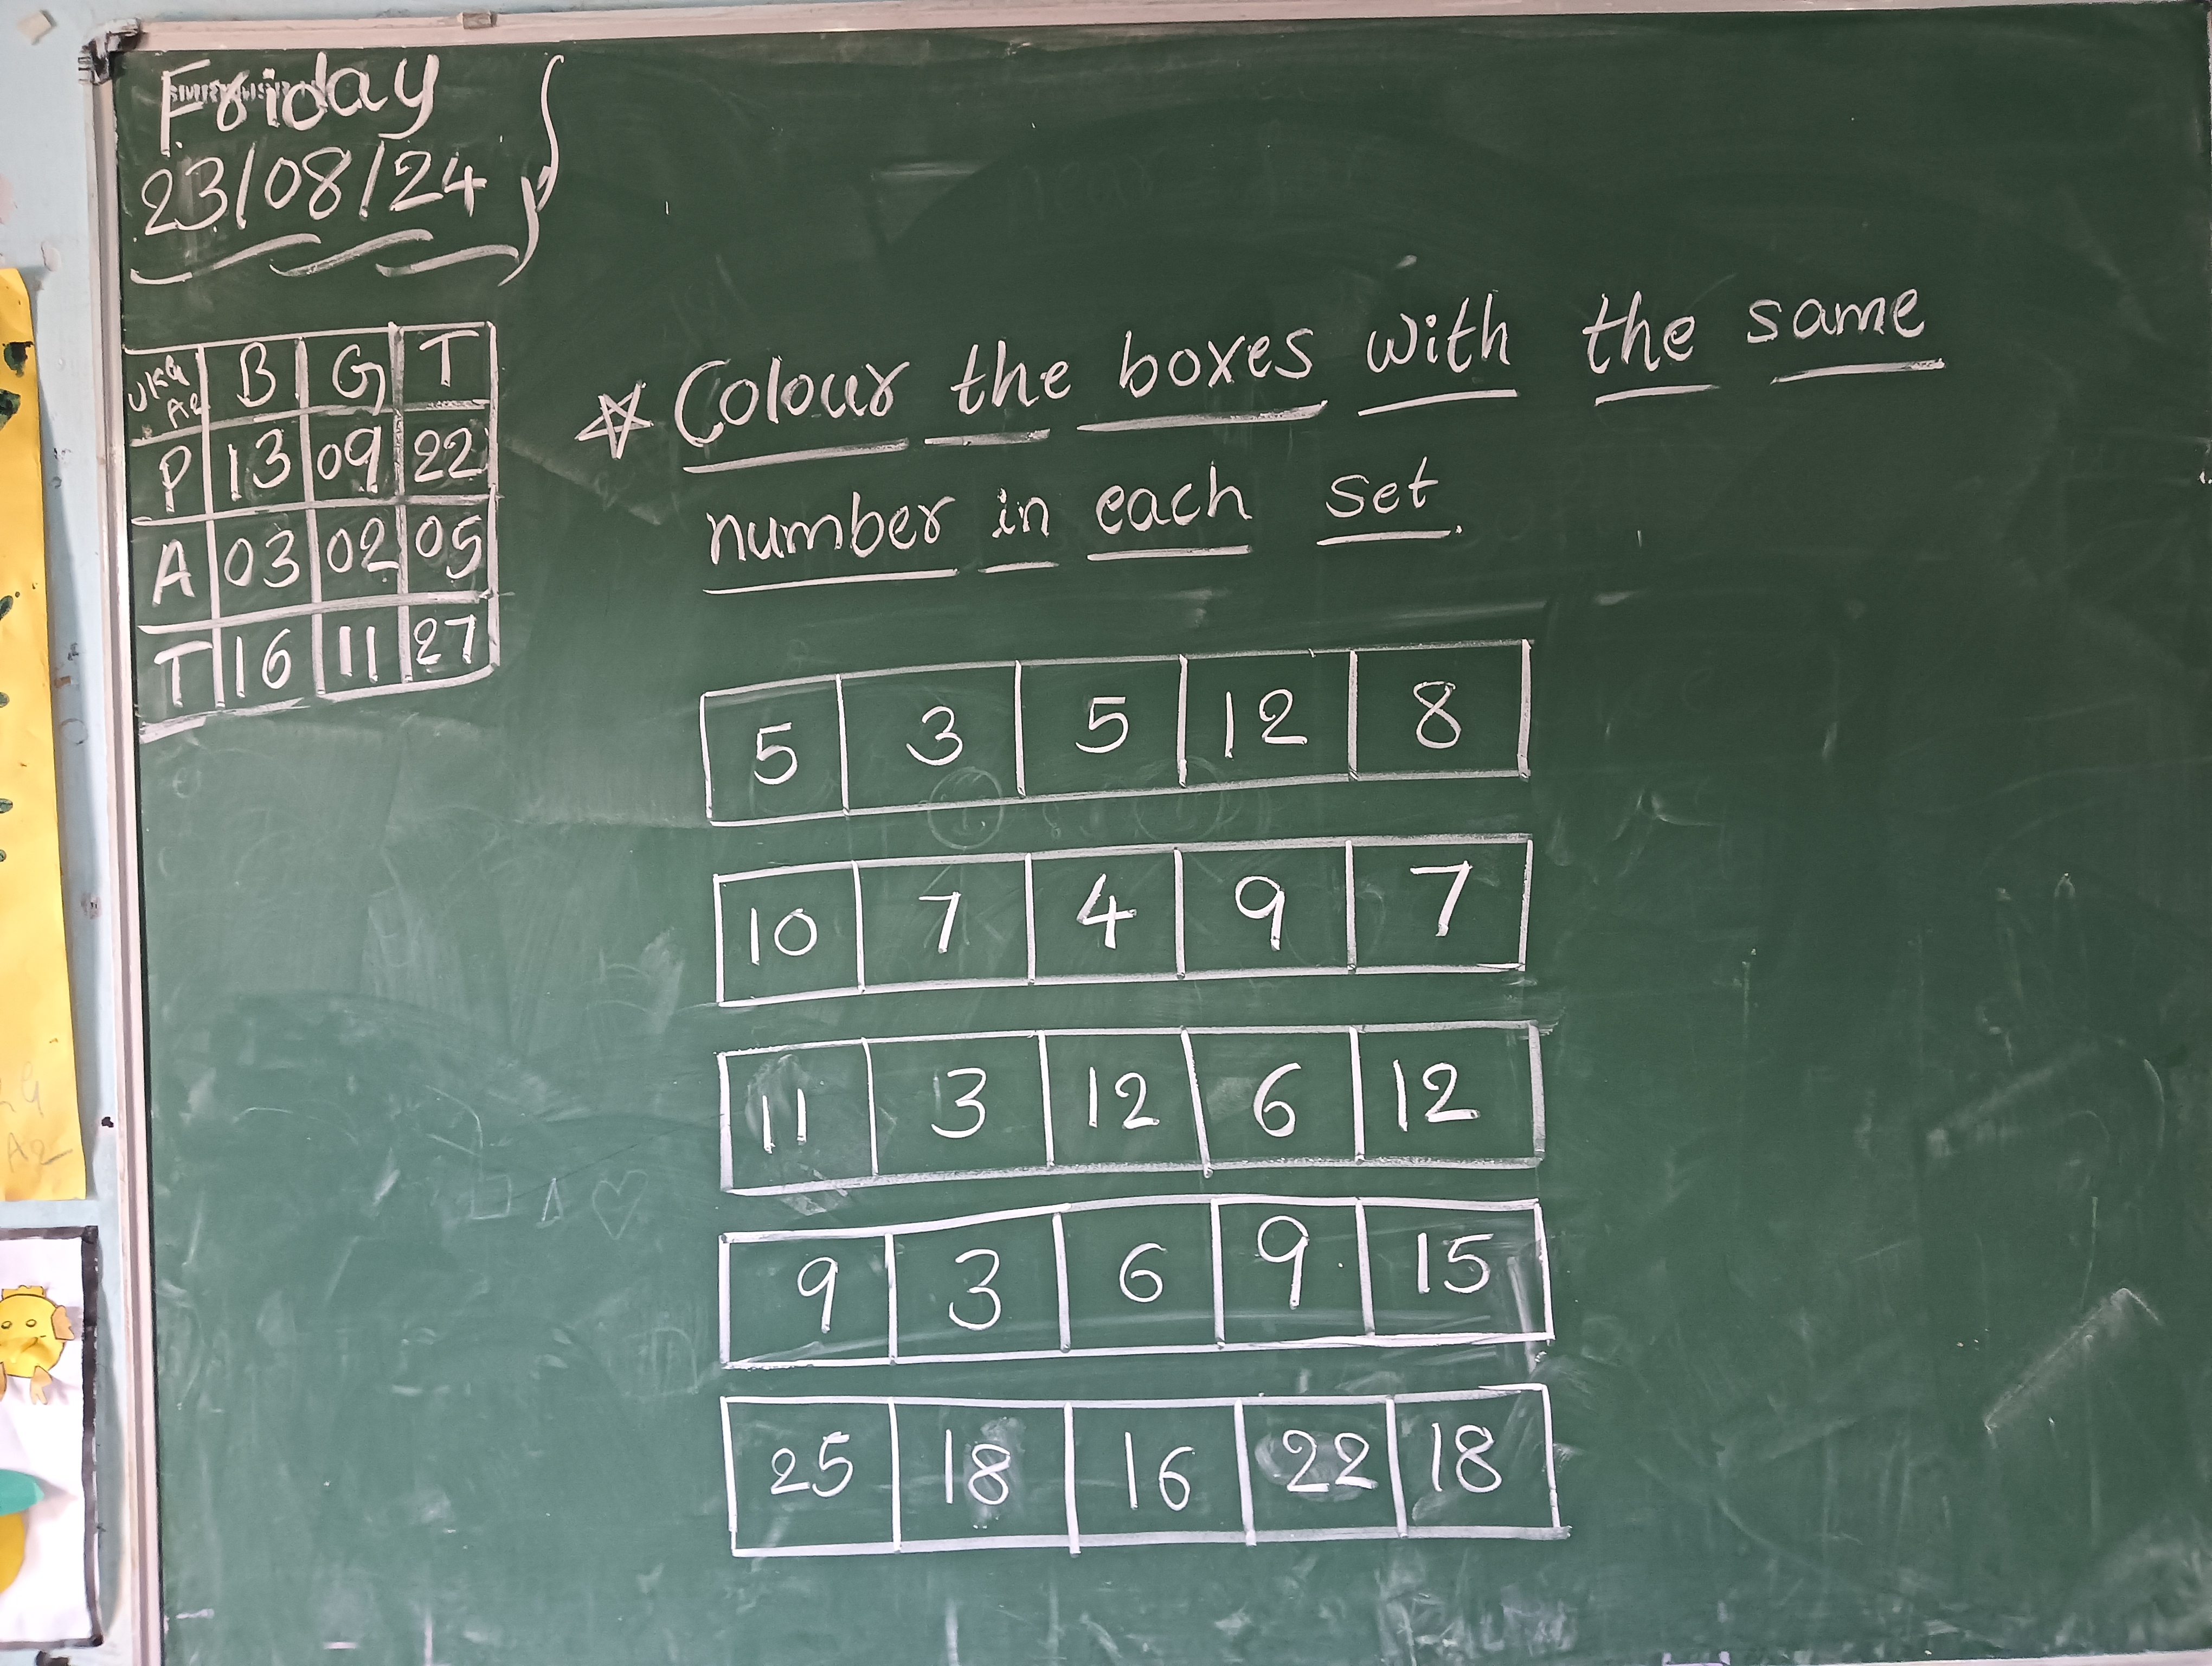 Friday
23/08/24
UKG A2 B G T
P 13 09 22
A 03 02 05
T 16 11 27
Colour the boxes with the same
number in each set.
5 3 5 12 8
10 7 4 9 7
11 3 12 6 12
9 3 6 9 15
25 18 16 22 18